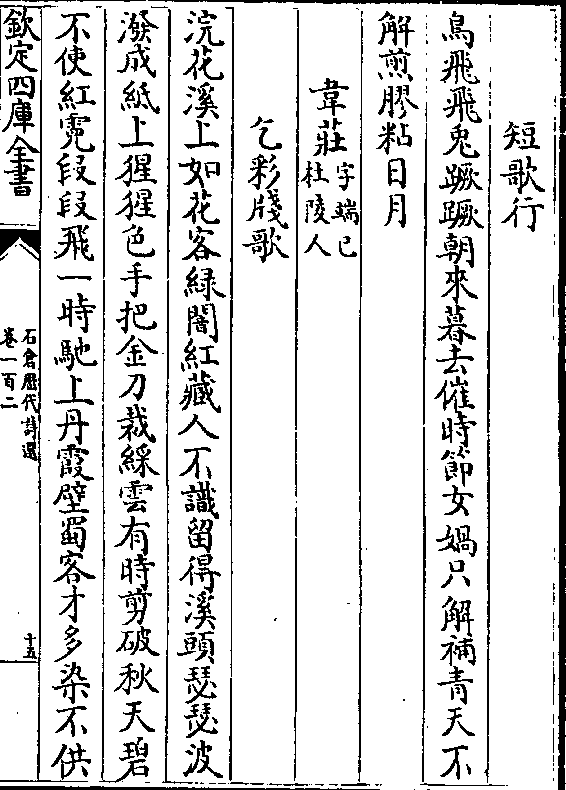 短歌行
鳥飛飛兎蹶蹶朝來暮去催時節女媧只解補青天不
解煎膠粘日月
韋莊字端已
杜陵人
乞彩牋歌
浣花溪上如花客緑闇紅藏人不識留得溪頭瑟瑟波
潑成紙上猩猩色手把金刀裁綵雲有時剪破秋天碧
不使紅霓段段飛一時馳上丹霞壁蜀客才多染不供
欽定四庫全書
石倉歷代詩選
卷一百二
十五